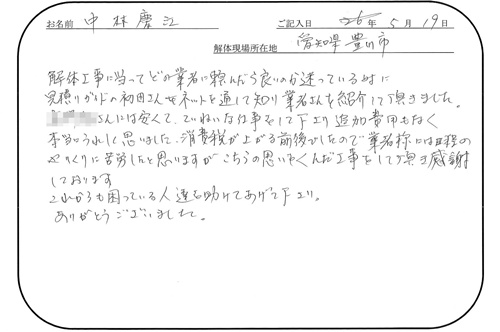 お名前 中林慶江 ご記入日 26年 5月 19日
解体現場所在地 愛知県豊川市
解体工事に当ってどの業者に頼んだら良いのか迷っている時に
見積りガイドの初田さんをネットを通して知り業者さんを紹介して頂きました。
さんには安くて、ていねいな仕事をして下さり追加費用もなく
本当にうれしく思いました。消費税が上がる前後でしたので業者様には日程の
やりくりに苦労したと思いますがこちらの思いをくんだ工事をして頂き感謝
しております
これからも困っている人達を助けてあげて下さい。
ありがとうございました。